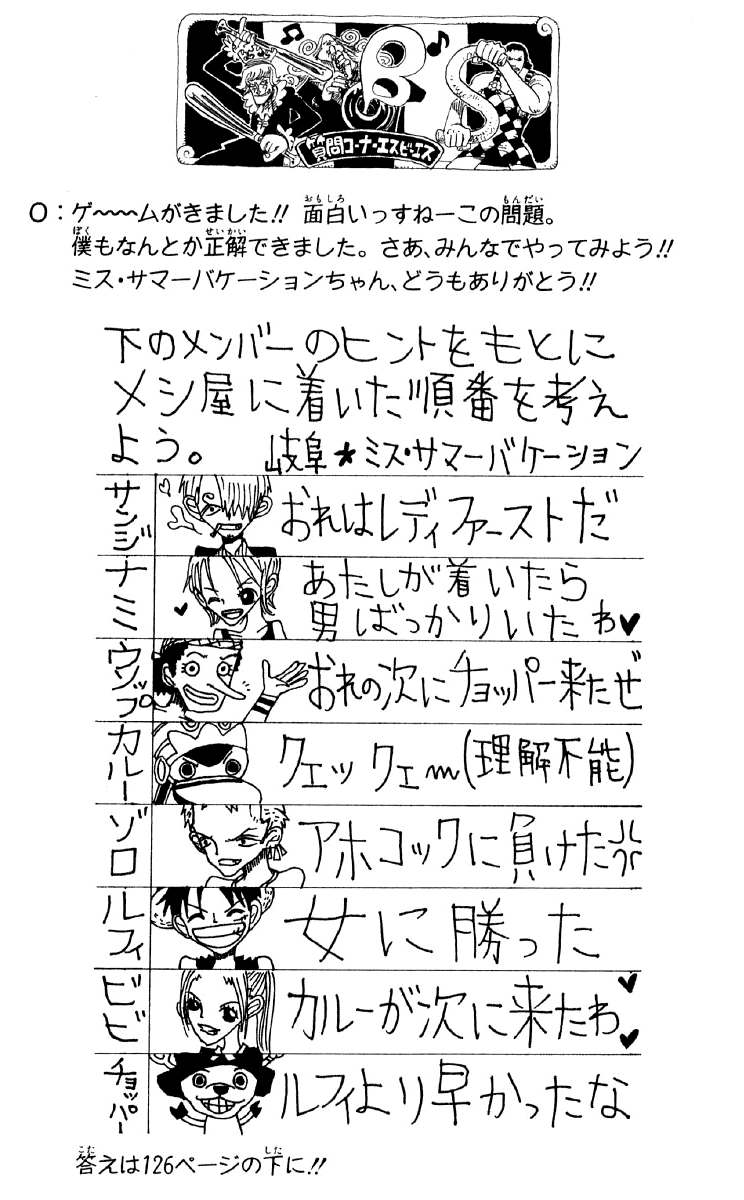 SBS
質問コーナー・エスビーエス
O:ゲ〜〜〜ムがきました!! 面白いっすねーこの問題。
僕もなんとか正解できました。さあ、みんなでやってみよう!!
ミス・サマーバケーションちゃん、どうもありがとう!!
下のメンバーのヒントをもとに
メシ屋に着いた順番を考え
よう。 岐阜★ミス・サマーバケーション
サンジ おれはレディファーストだ
ナミ あたしが着いたら
男ばっかりいたわ♥
ウソップ おれの次にチョッパー来たぜ
カルー クエックエ〜(理解不能)
ゾロ アホコックに負けた
ルフィ 女に勝った
ビビ カルーが次に来たわ♥♥
チョッパー ルフィより早かったな
答えは126ページの下に!!